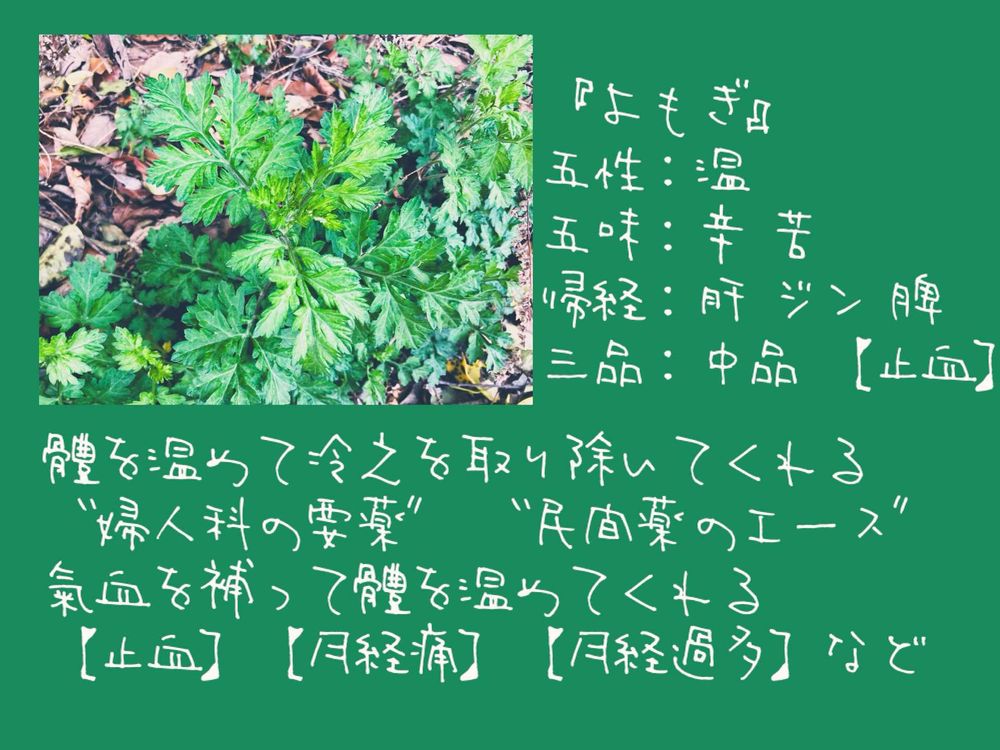 『よもぎ』
五性：温
五味：辛 苦
帰経：肝 ジン 脾
三品：中品 【止血】
體を温めて冷えを取り除いてくれる
"婦人科の要薬" "民間薬のエース"
氣血を補って體を温めてくれる
【止血】 【月経痛】 【月経過多】など